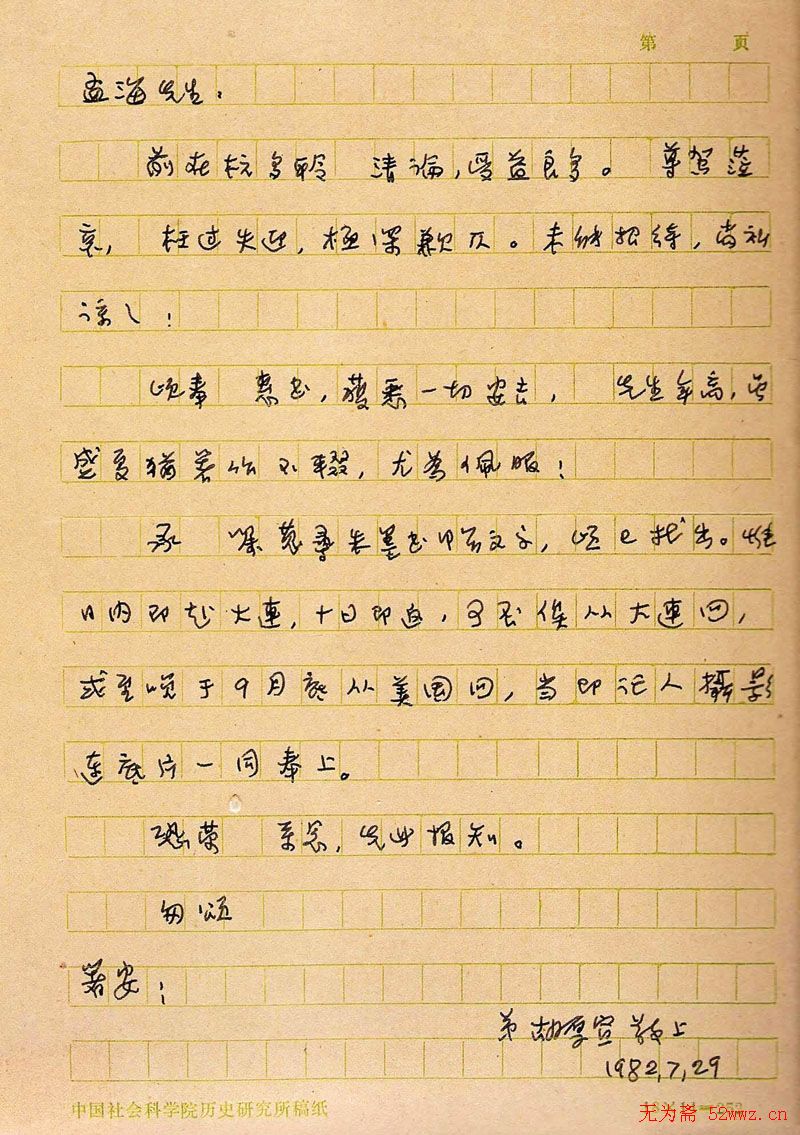 第 页
孟海先生：
前在杭多聆 清论，受益良多。 尊驾莅
京， 枉过失迎，极深歉仄。未能招待，尚祈
谅之！
顷奉 惠书，获悉一切安吉， 先生年高，当
盛夏犹著作不辍，尤为佩服！
承 嘱觅寻朱墨书甲骨文字，顷已找出。惟
日内即赴大连，十日即返，可否俟从大连回，
或至晚于9月底从美国回，当即托人摄影
连底片一同奉上。
恐荣 系念，先此报知。
匆颂
暑安！
弟 胡厚宣 敬上
1982,7,29
中国社会科学院历史研究所稿纸
无为斋 52wwz.cn